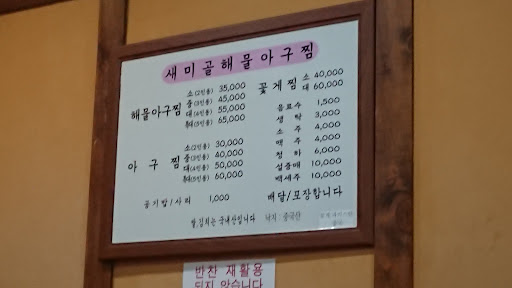 새미골해물아구찜
해물아구찜
소(2인용) 35,000
중(3인용) 45,000
대(4인용) 55,000
특대(5인용) 65,000
아구찜
소(2인용) 30,000
중(3인용) 40,000
대(4인용) 50,000
특대(5인용) 60,000
공기밥/사리 1,000
꽃게찜 소 40,000
대 60,000
음료수 1,500
생탁 3,000
소주 4,000
맥주 4,000
청하 6,000
설중매 10,000
백세주 10,000
배달/포장합니다
쌀,김치는 국내산입니다 낙지 중국산
반찬 재활용
되지 않습니다